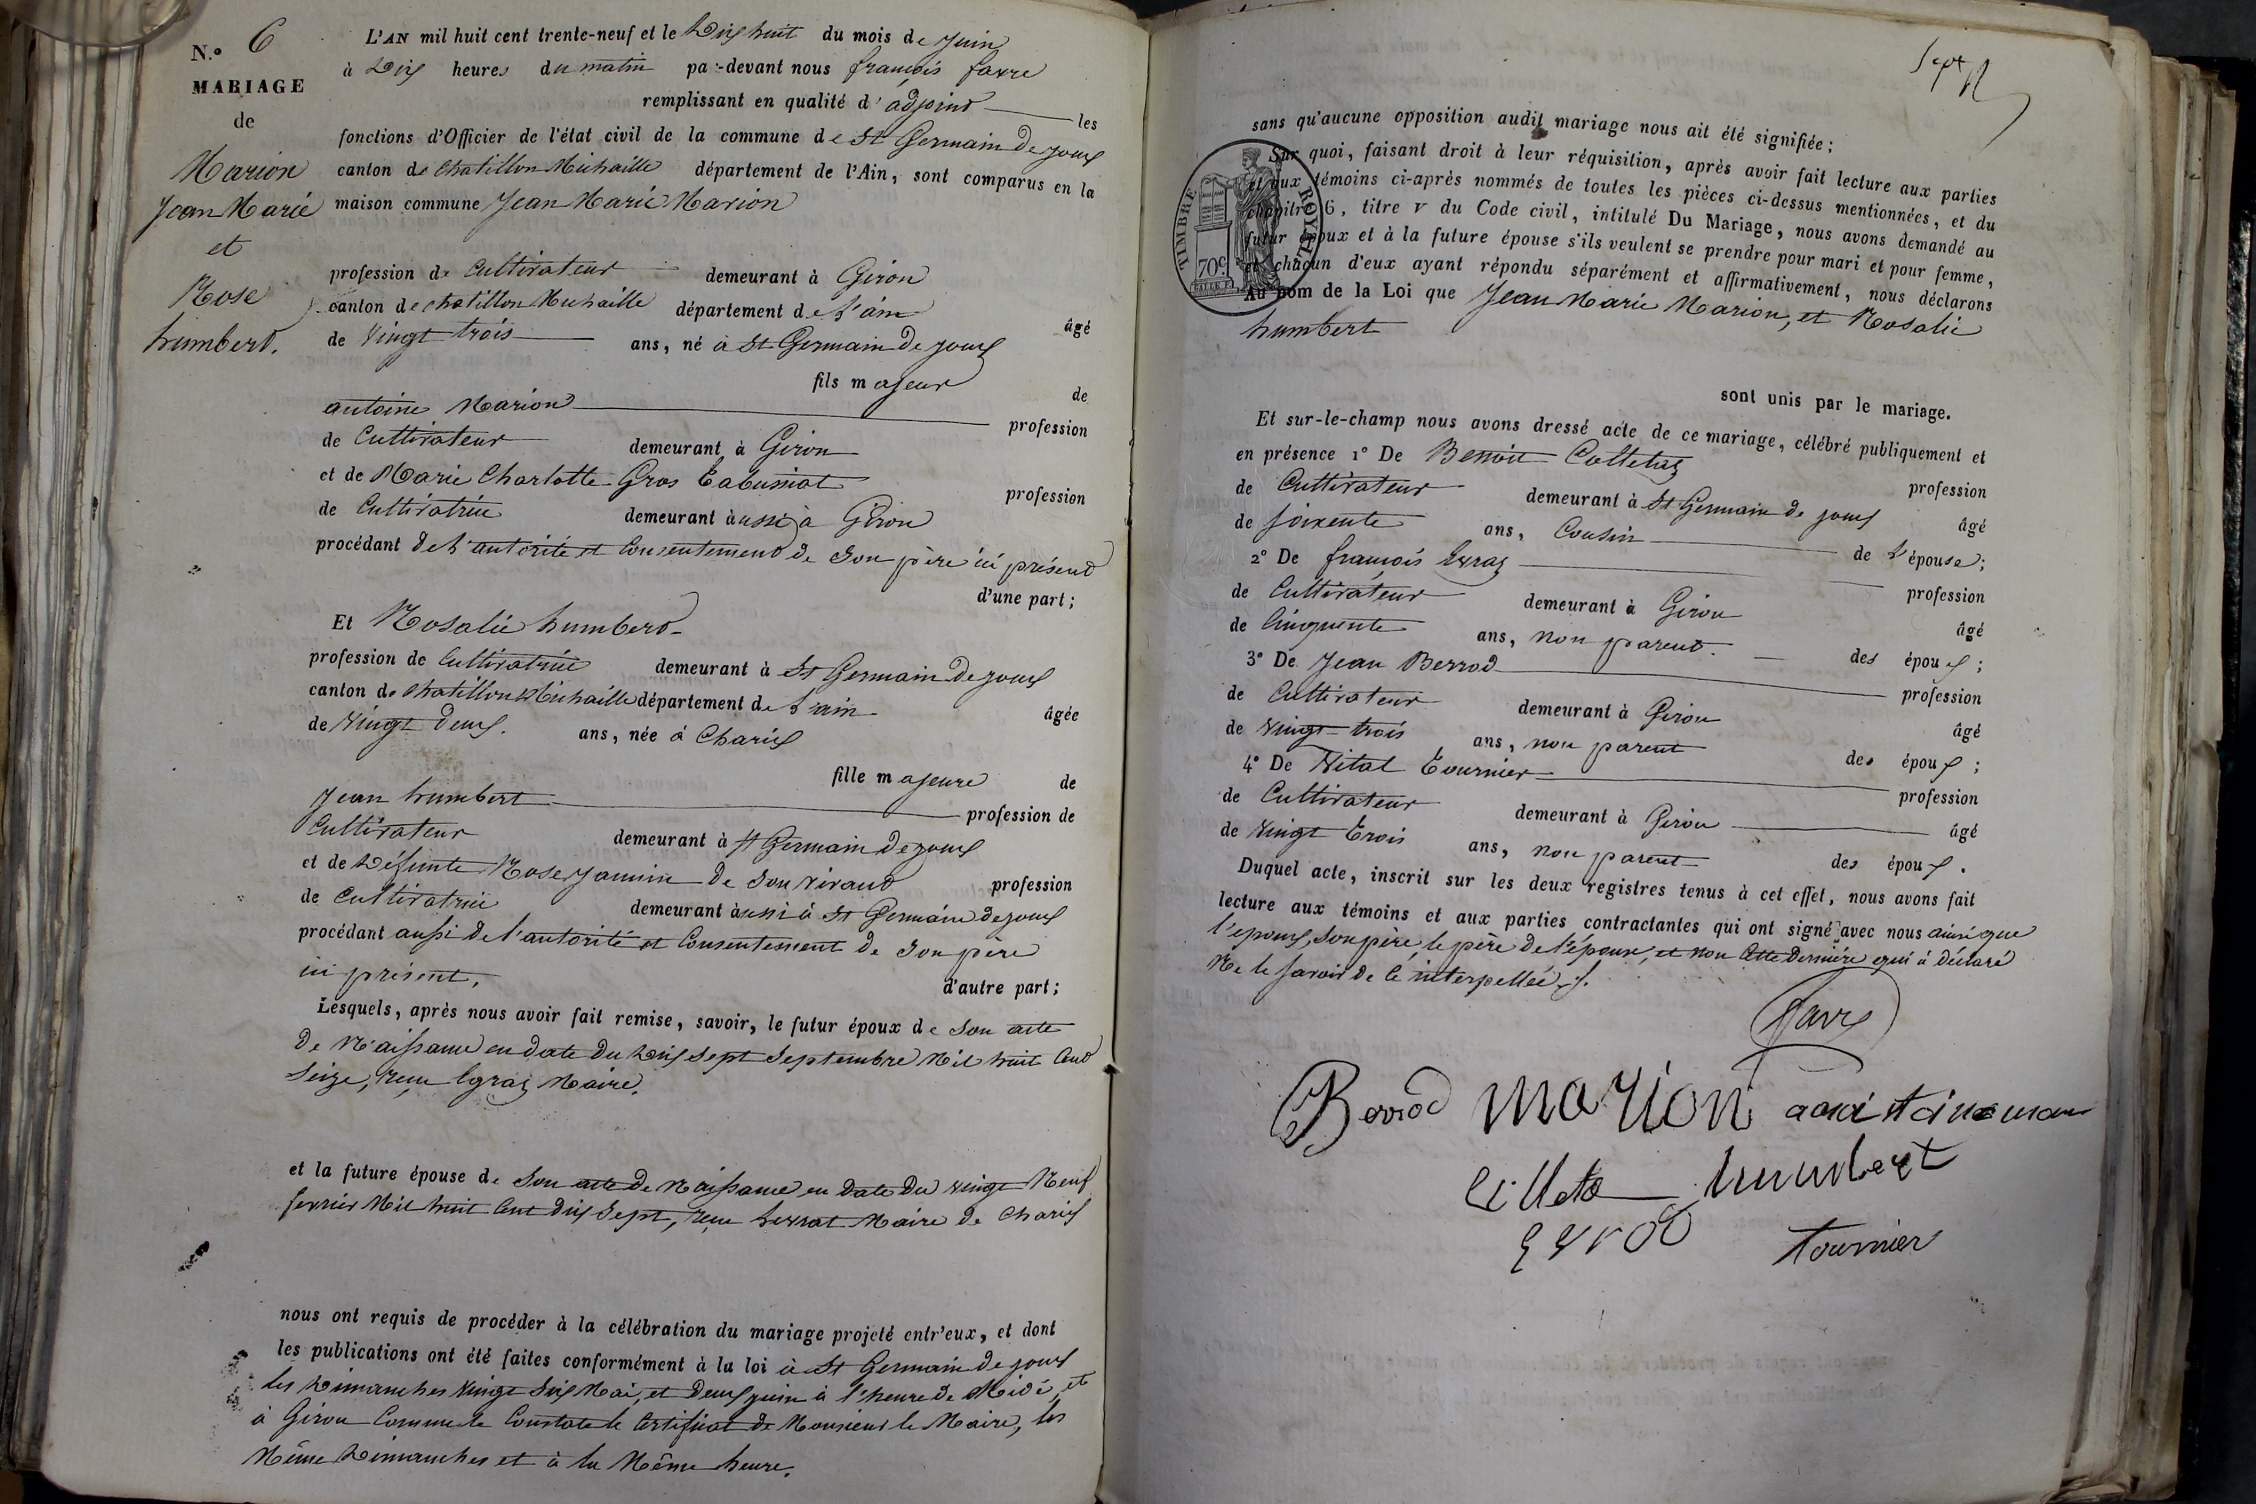 N.° 6
MARIAGE
de
Marion
Jean Marie
et
Rose
humbert.
L'AN mil huit cent trente-neuf et le Dix huit du mois de Juin
à Dix heures du matin pa-devant nous françois favre
remplissant en qualité d'adjoint les
fonctions d'Officier de l'état civil de la commune de St Germain De joux
canton de Chatillon Michaille département de l'Ain, sont comparus en la
maison commune Jean Marie Marion
profession de Cultivateur demeurant à Giron
canton de chatillon Michaille département de L'ain âgé
de Vingt trois ans, né à St Germain De joux
fils majeur de
antoine Marion profession
de Cultivateur demeurant à Giron
et de Marie Charlotte Gros tabussiat profession
de Cultivatrice demeurant aussi à Giron
procédant de L'autorité et Consentement de Son père ici présent
d'une part;
Et Rosalie humbert
profession de Cultivatrice demeurant à St Germain De joux
canton de chatillon Michaille département de L'ain âgée
de Vingt Deux. ans, née à Charix
fille majeure de
Jean humbert profession de
Cultivateur demeurant à St Germain De joux
et de Défunte Rose Jannin de Son Vivant profession
de Cultivatrice demeurant aussi à St Germain de joux
procédant aussi de l'autorité et Consentement de Son père
ici présent, d'autre part;
Lesquels, après nous avoir fait remise, savoir, le futur époux de Son acte
De Naissance en date Du Dix Sept Septembre Mil huit Cent
Seize, reçu Maire.
et la future épouse de Son acte de Naissance en Date Du Vingt Neuf
fevrier Mil huit Cent Dix Sept, reçu Maire de Charix
nous ont requis de procéder à la célébration du mariage projeté entr'eux, et dont
les publications ont été faites conformément à la loi à St Germain De joux
les Dimanches Vingt Six Mai, et Deux juin à l'heure de Midi, et
à Giron Comme le Constate le Certificat de Monsieur le Maire, les
Même Dimanches et à la Même heure.
Sept
sans qu'aucune opposition audit mariage nous ait été signifiée;
Sur quoi, faisant droit à leur réquisition, après avoir fait lecture aux parties
et aux témoins ci-après nommés de toutes les pièces ci-dessus mentionnées, et du
chapitre 6, titre v du Code civil, intitulé Du Mariage, nous avons demandé au
futur époux et à la future épouse s'ils veulent se prendre pour mari et pour femme,
et chacun d'eux ayant répondu séparément et affirmativement, nous déclarons
Au nom de la Loi que Jean Marie Marion, et Rosalie
humbert
TIMBRE ROYAL
70c
sont unis par le mariage.
Et sur-le-champ nous avons dressé acte de ce mariage, célébré publiquement et
en présence 1° De Benoit Colletaz profession
de Cultivateur demeurant à St Germain de joux âgé
de Soixente ans, Cousin de L'épouse;
2° De françois Evraz profession
de Cultivateur demeurant à Giron âgé
de Cinquente ans, non parent. des époux;
3° De Jean Berrod profession
de Cultivateur demeurant à Giron âgé
de Vingt trois ans, non parent des époux;
4° De Vital Tournier profession
de Cultivateur demeurant à Giron âgé
de Vingt Trois ans, non parent des époux.
Duquel acte, inscrit sur les deux registres tenus à cet effet, nous avons fait
lecture aux témoins et aux parties contractantes qui ont signé avec nous ainsi que
l'epoux, Son père, le père de L'épouse, et non Cette Dernière qui à déclaré
Ne le Savoir de Ce interpellée.
favre
Berrod Marion
humbert
Tournier